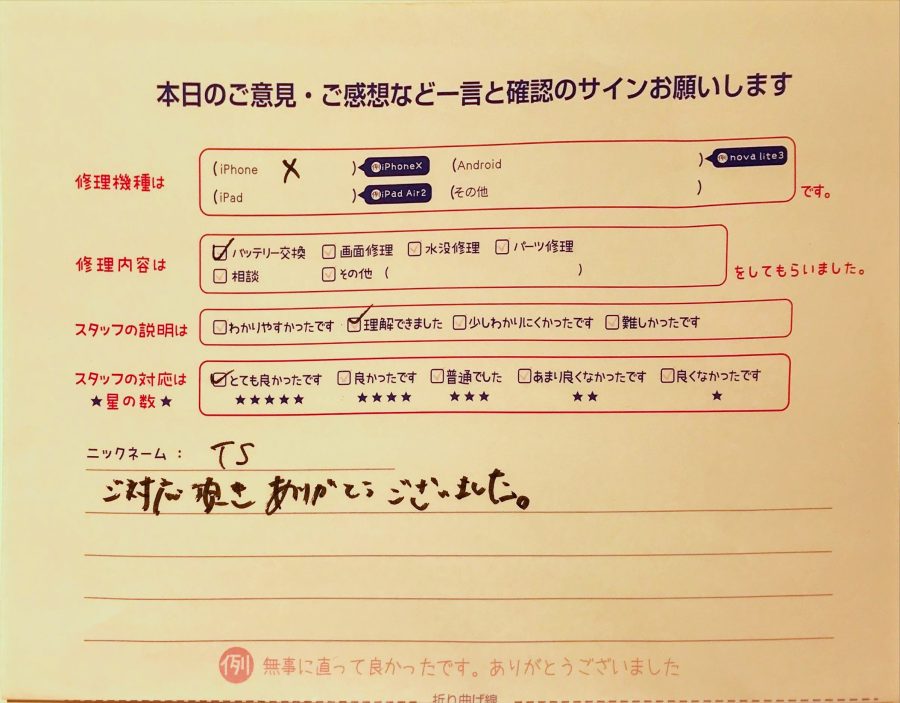 本日のご意見・ご感想など一言と確認のサインお願いします
修理機種は (iPhone X ) 例iPhoneX (Android ) 例nova lite3
(iPad ) 例iPad Air2 (その他 ) です。
修理内容は バッテリー交換 画面修理 水没修理 パーツ修理
相談 その他 ( ) をしてもらいました。
スタッフの説明は わかりやすかったです 理解できました 少しわかりにくかったです 難しかったです
スタッフの対応は とても良かったです 良かったです 普通でした あまり良くなかったです 良くなかったです
★星の数★ ★★★★★ ★★★★ ★★★ ★★ ★
ニックネーム： TS
ご対応頂きありがとうございました。
例 無事に直って良かったです。ありがとうございました
折り曲げ線